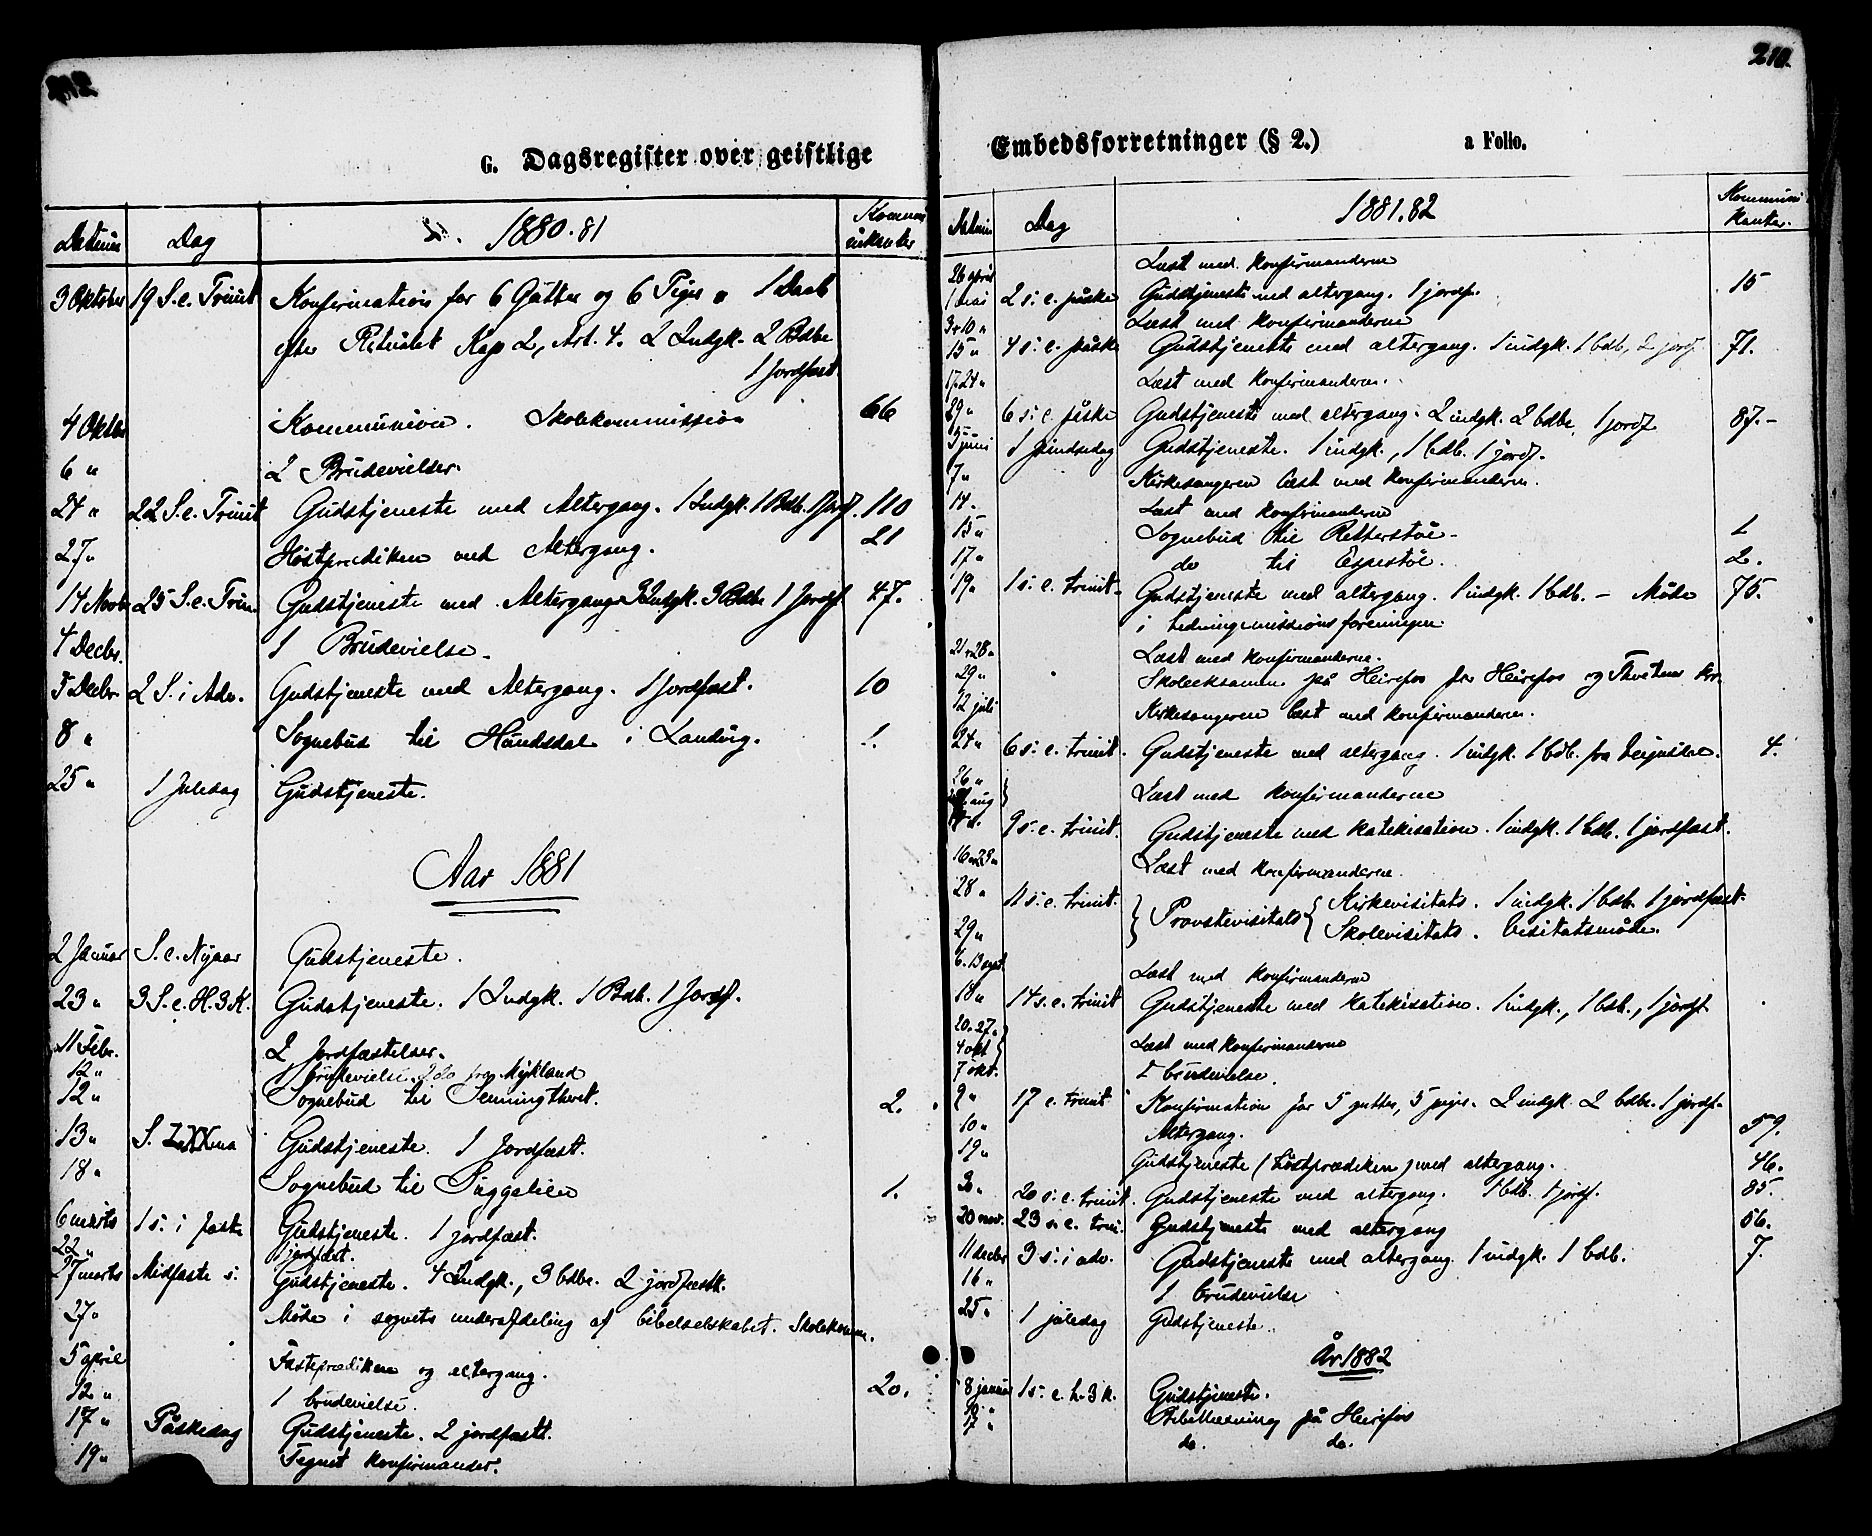 210.
G. Dagsregister over geistlige
Datum Dag 1880.81 Kommunikanter
3 Oktober 19 S. e. Trinit Konfirmation for 6 Gutter og 6 Piger 1 Daab
efter Ritualet Kap 2, Art. 4. 2 Indgk. 2 Bdbe
1 Jordfæst.
4 Oktbr Kommunion. Skolekommission 66
6 " 2 Brudevielser.
24 " 22 S. e. Trinit Gudstjeneste med Altergang. 1 Indgk. 1 Bdb. 1 Jordf. 110
27 " Høstprædiken med Altergang. 21
14 Novb 25 S. e. Trin. Gudstjeneste med Altergang 3 Indgk. 3 Bdbe 1 Jordf. 47.
4 Decbr. 1 Brudevielse.
5 Decbr. 2 S. i Adv. Gudstjeneste med Altergang. 1 Jordfæst. 10
8 " Sognebud til Hundsdal i Landvig. 1.
25 " 1 Juledag Gudstjeneste.
Aar 1881
2 Januar S. e. Nyaar Gudstjeneste.
23 " 3 S. e. H. 3 K. Gudstjeneste. 1 Indgk. 1 Bdb. 1 Jordf.
11 Febr. 2 Jordfæstelser.
12 " 1 brudevielse. 2 do fra Mykland
12 " Sognebud til 2.
13 " S. LXXma Gudstjeneste. 1 Jordfæst.
18 " Sognebud til 1.
6 marts 1 s. i faste Gudstjeneste. 1 jordfæst.
22 " 1 jordfæst.
27 marts Midfaste s. Gudstjeneste. 4 Indgk., 3 bdbe. 2 jordfæstt.
27 " Møde i sognets underafdeling af bibelselskabet. Skolekomm.
5 april Fasteprædiken og altergang. 20.
12 " 1 brudevielse.
17 " Påskedag Gudstjeneste. 2 jordfæstt.
19 " Tegnet konfirmander.
Embedsforretninger (§ 2.) a Folio.
Datum Dag 1881.82 Kommunikanter.
26 april Læst med konfirmanderne
1 mai 2 s. e. påske Gudstjeneste med altergang. 1 jordf. 15
3 & 10 " Læst med konfirmanderne
15 " 4 s. e. påske Gudstjeneste med altergang. 1 indgk. 1 bdb, 2 jordf 71.
17. 24 " Læst med konfirmanderne.
29 " 6 s. e. påske Gudstjeneste med altergang. 2 indgk. 2 bdbe, 1 jordf 87.-
5 juni 1 pindsedag Gudstjeneste. 1 indgk., 1 bdb. 1 jordf.
7 " Kirkesangeren læst med konfirmanderne.
14. Læst med konfirmanderne
15 " Sognebud til Retterstøl. 1
17 " do til Espestøl. 2.
19 " 1 s. e. trinit. Gudstjeneste med altergang. 1 indgk. 1 bdb. - Møde 75.
i hedningemissionsforeningen.
21 & 28 " Læst med konfirmanderne.
29 " Skoleeksamen på Heirefos for Heirefos og Tveitens kr.
12 juli Kirkesangeren læst med konfirmanderne.
24 " 6 s. e. trinit. Gudstjeneste med altergang. 1 indgk. 1 bdb. fra 4.
26 " aug Læst med konfirmanderne
9 s. e. trinit. Gudstjeneste med katekisation. 1 indgk. 1 bdb. 1 jordfæst.
16 & 23 " Læst med konfirmanderne.
28 " 11 s. e. trinit. Provstevisitats Kirkevisitats. 1 indgk. 1 bdb. 1 jordfæst.
29 " Skolevisitats. Visitatsmøde.
6. 13 sept. Læst med konfirmanderne
18 " 14 s. e. trinit Gudstjeneste med katekisation. 1 indgk., 1 bdb., 1 jordf.
20. 27. " 4 okt Læst med konfirmanderne
7 okt. 1 brudevielse.
9 " 17 e. trinit Konfirmation for 5 gutter, 5 piger. 2 indgk. 2 bdbe. 1 jordf.
10 " Altergang. 59.
19 " Gudstjeneste (høstprædiken) med altergang. 46.
30 " 20 s. e. trinit. Gudstjeneste med altergang. 1 bdb. 1 jordf. 85.
20 nov. 23 s. e. trin. Gudstjeneste med altergang 56.
11 decbr 3 s. i adv. Gudstjeneste med altergang 1 indgk. 1 bdb. 7.
16 " 1 brudevielse
25 " 1 juledag Gudstjeneste.
År 1882
8 januar 1 s. e. h. 3 k. Gudstjeneste.
10 " Bibellæsning på Heirefos
17 " do. do.